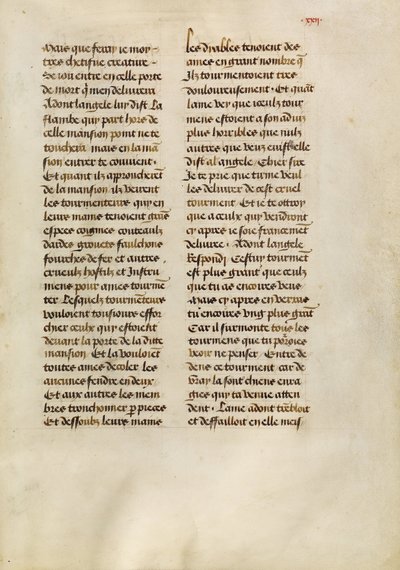 .xxii.
Mais que feray ie moy
tres chetifue creature
Se ion entre en celle porte
de mort q̄ men deliurera
Adont langele luy dist La
flambe qui part hors de
celle mansion point ne te
touchera mais en la mā
sion entrer te conuient
Et quant ilz approcherent
de la mansion ilz veirent
les tourmenteurs qui en
leurs mains tenoient grās
espees coignies couteaulz
dardes faulchons
fourches de fer et autres
crueulz hostilz et Instru
mens pour ames tourmē
ter Lesquelz tourmēteurs
vouloient tousiours effor
chier ceulx qui estoient
deuant la porte de la dite
mansion Et la vouloiēt
toutes ames decoler les
aucunes fendre en deux
Et aux autres les mem
bres tronchonner p pieces
Et dessoubz leurs mains
Les dyables tenoient des
ames en grant nombre q̄
Ilz tourmentoient tres
douloureusement Et quāt
lame vey que iceulz tour
mens estoient a son aduiz
plus horribles que nulz
autres que veuz euist elle
dist al angele Chier sire
Je te prie que tu me veul
les deliurer de cest cruel
tourment Et ie te ottroy
que a ceulx qui vendront
cy apres ie soie francemēt
deliure Adont langele
Respondi Cestuy tourmēt
est plus grant que ceulz
que tu as encores veus
Mais cy apres en verras
tu encores vng plus grāt
Car il surmonte tous les
tourmens que tu
veoir ne penser Entre de
dens ce tourment car de
vray la sont chiens enra
gies qui ta venue atten
dent Lame adont trēbloit
et deffailloit en elle meis